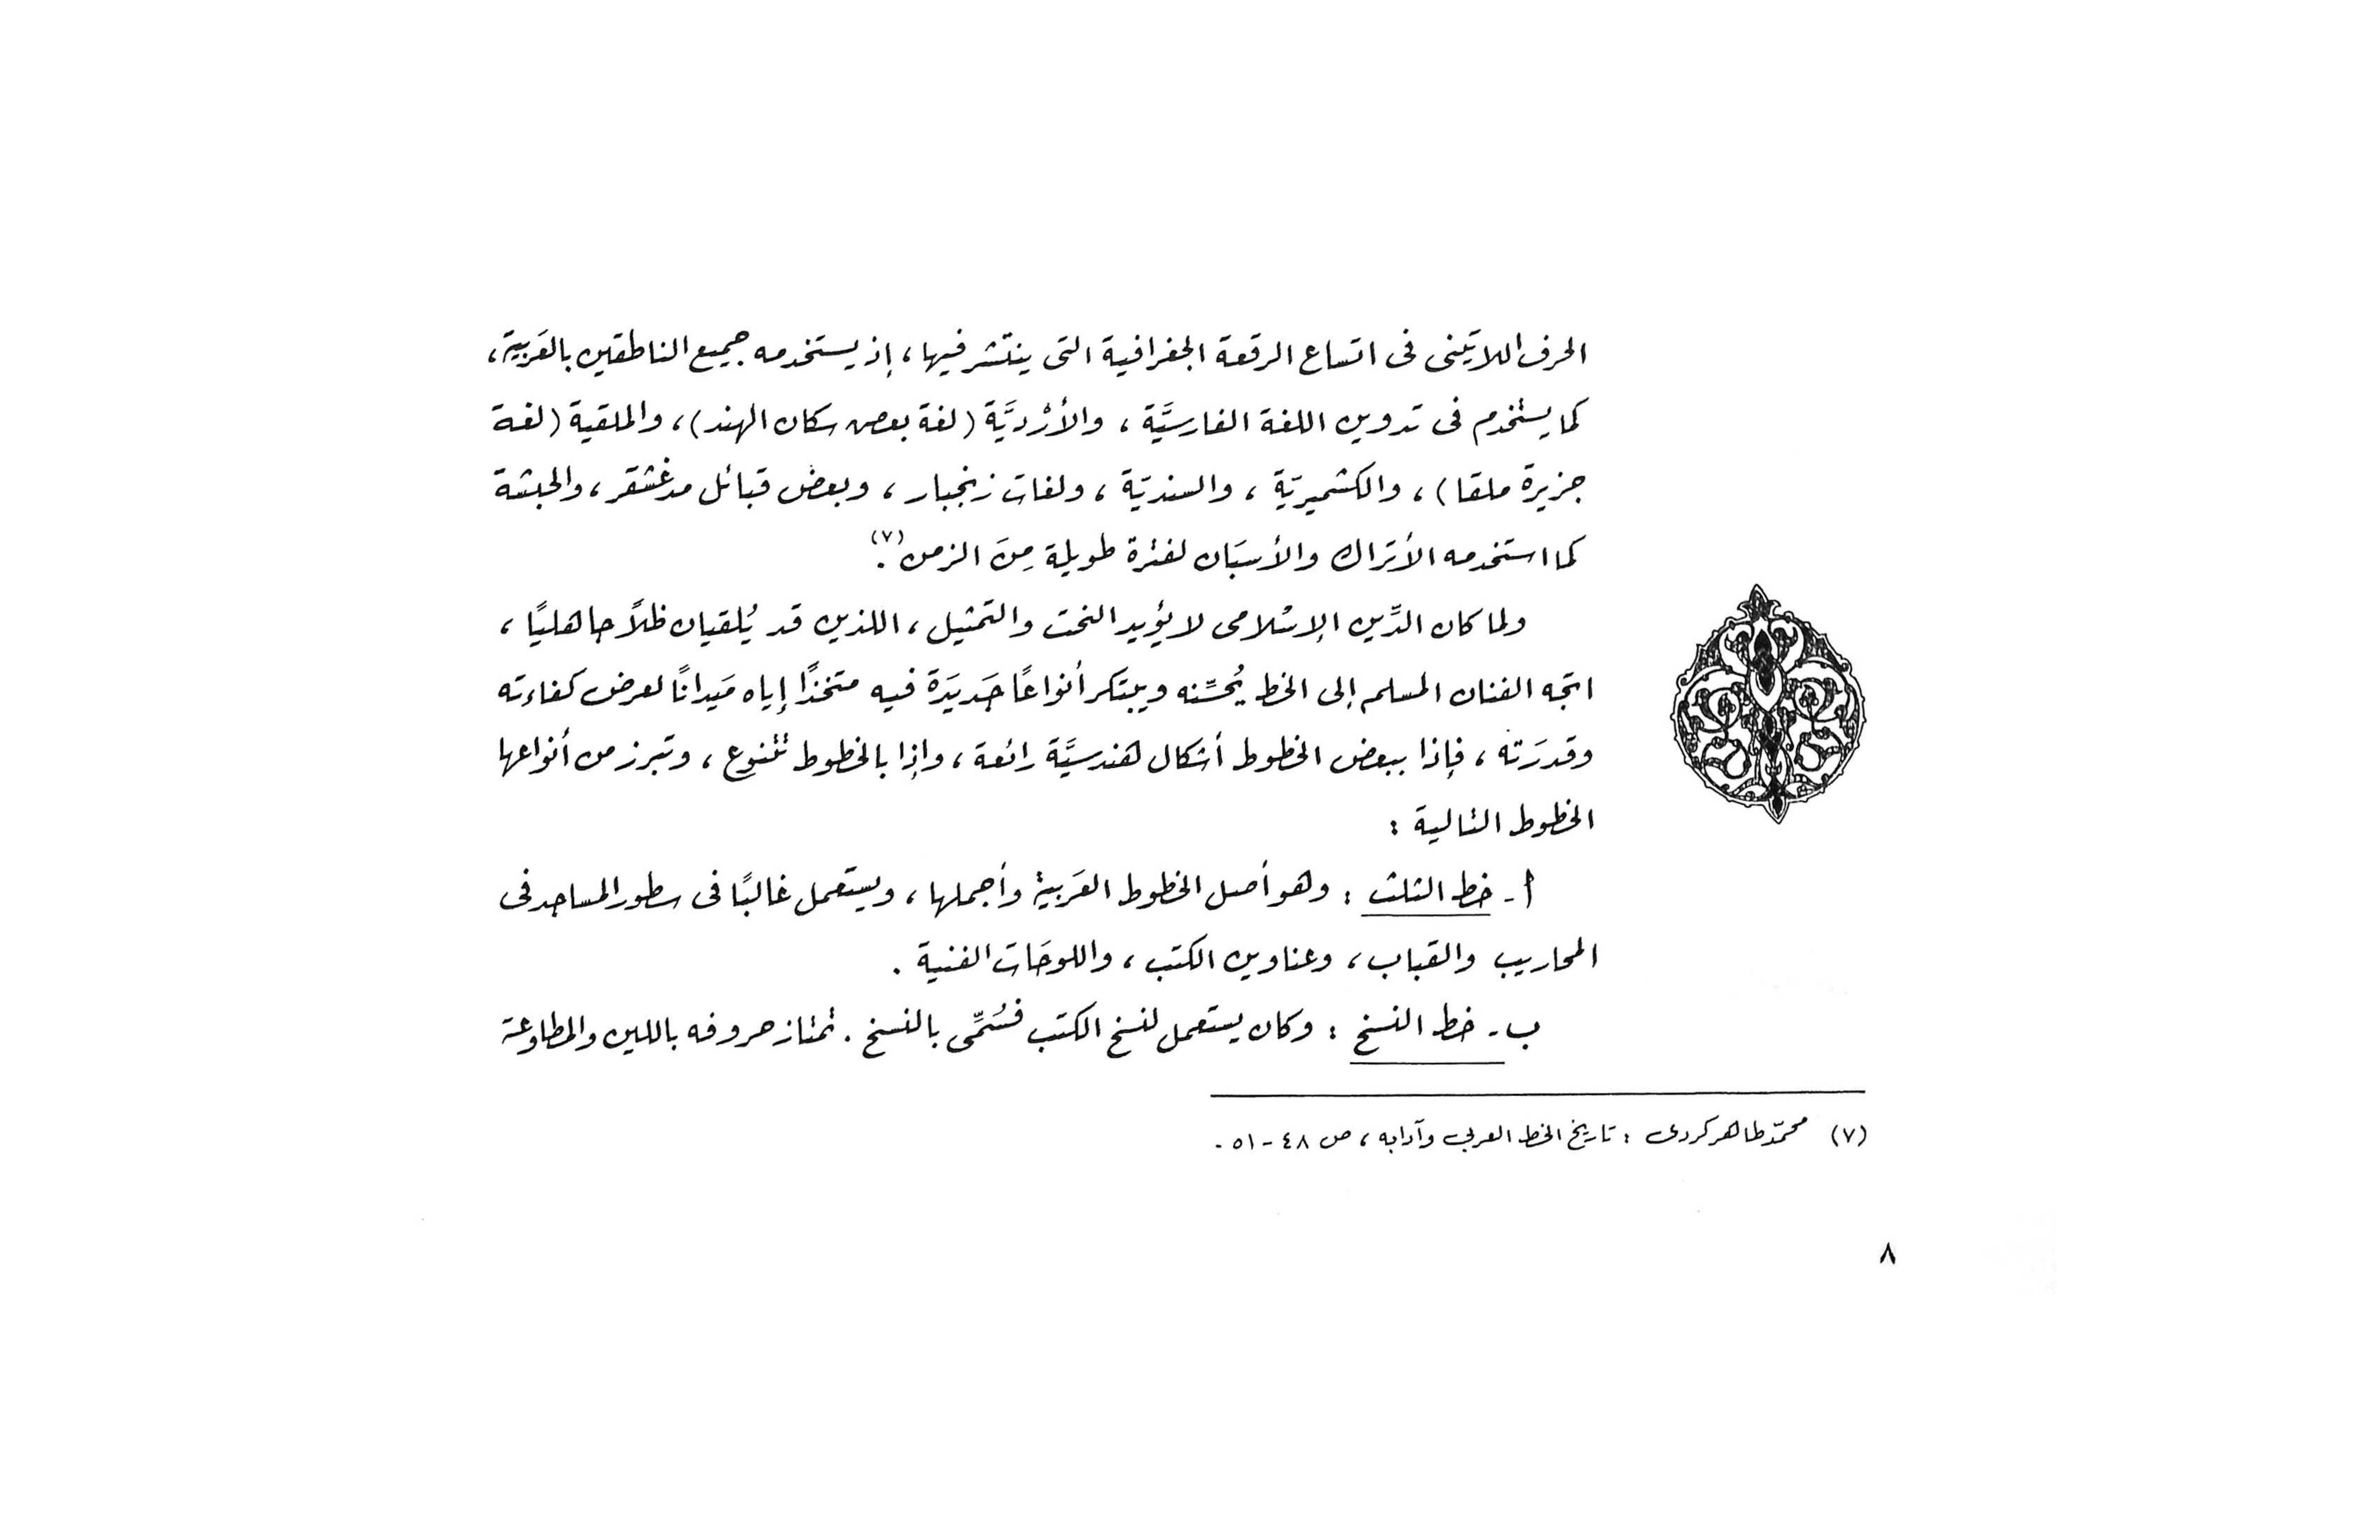 الحرف اللاتَينى فى اتساع الرقعة الجغرافية التى ينتشر فيها، إذ يستخدمه جميع الناطقين بالعَربيَّة،
كما يستخدم فى تدوين اللغة الفارسيَّة، والأرْديَّة (لغة بعض سكان الهند)، والملقية (لغة
جزيرة ملقا)، والكشميريّة، والسنديّة، ولغات زنجبار، وبعض قبائل مدغشقر، والحبشة
كما استخدمه الأتَراك والأسبَان لفترة طويلة مِنَ الزمن (٧).
ولما كان الدِّين الإسْلامى لا يؤيد النحت والتمثيل، اللذين قد يُلقيان ظلاً جاهليًا،
اتجه الفنان المسلم إلى الخط يُحسِّنه ويبتكر أنواعًا جَديَدَة فيه متخذًا إياه مَيدانًا لعرض كفاءته
وقدرَته، فإذا ببعض الخطوط أشكال هندسيَّة رائعة، وإذا بالخطوط تتنوع، وتبرز من أنواعها
الخطوط التالية :
أ- خط الثلث : وهو أصل الخطوط العَربية وأجملها، ويستعمل غالبًا فى سطور المساجد فى
المحاريب والقباب، وعناوين الكتب، واللوحَات الفنية .
ب- خط النسخ : وكان يستعمل لنسخ الكتب فسُمِّى بالنسخ . تمتاز حروفه باللين والمطاوعة
(٧) محمّد طاهر كردى : تاريخ الخط العربي وآدابه، ص ٤٨ - ٥١ .
٨